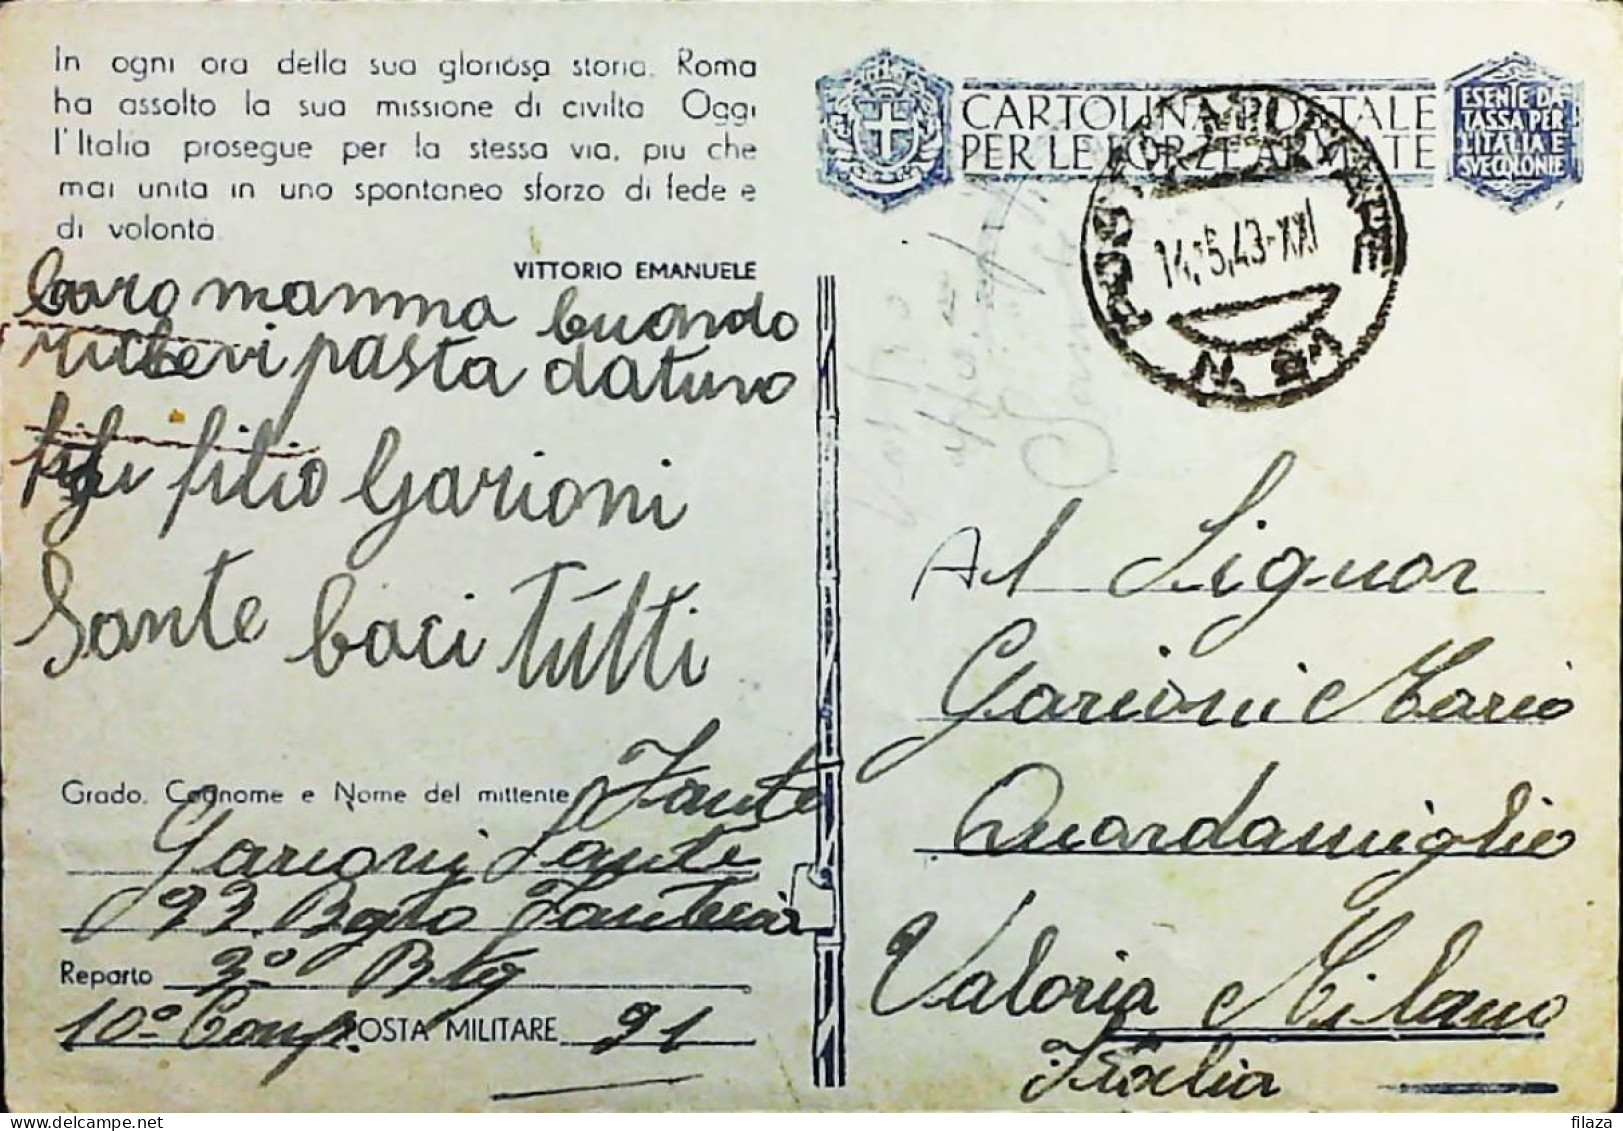 In ogni ora della sua gloriosa storia, Roma
ha assolto la sua missione di civiltà Oggi
l'Italia prosegue per la stessa via, più che
mai unita in uno spontaneo sforzo di fede e
di volontà
VITTORIO EMANUELE
Caro mamma buando
ricbevi pasta datuno
filio Garioni
Sante baci tutti
Grado, Cognome e Nome del mittente Fante
Garioni Sante
93. Bgto Fanteria
Reparto 3° Btg
10° Comp. POSTA MILITARE 91
CARTOLINA POSTALE
PER LE FORZE ARMATE
ESENTE DA
TASSA PER
L'ITALIA E
SUE COLONIE
POSTA MILITARE
14.5.43-XXI
N
Al Signor
Garioni Mario
Quardamiglio
Valoria Milano
Italia
filaza